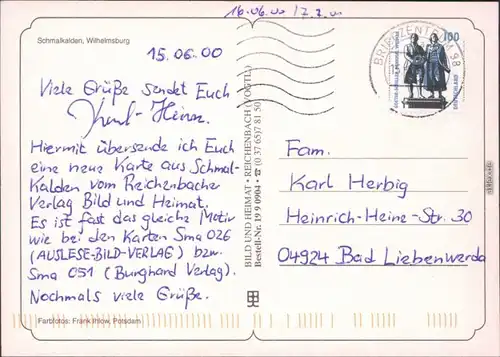 16.06.00 17.2.00
Schmalkalden, Wilhelmsburg
15.06.00
Viele Grüße sendet Euch
Karl-Heinz.
Hiermit übersende ich Euch
eine neue Karte aus Schmal-
kalden vom Reichenbacher
Verlag Bild und Heimat.
Es ist fast das gleiche Motiv
wie bei den Karten Sma 026
(AUSLESE-BILD-VERLAG) bzw.
Sma 051 (Burghard Verlag).
Nochmals viele Grüße.
Farbfotos: Frank Ihlow, Potsdam
BILD UND HEIMAT • REICHENBACH (VOGTL)
Bestell-Nr. 19 9 0904 • ☎ (0 37 65) 7 81 50
BRIEFZENTRUM 98
100
DEUTSCHLAND
Fam.
Karl Herbig
Heinrich-Heine-Str. 30
04924 Bad Liebenwerda